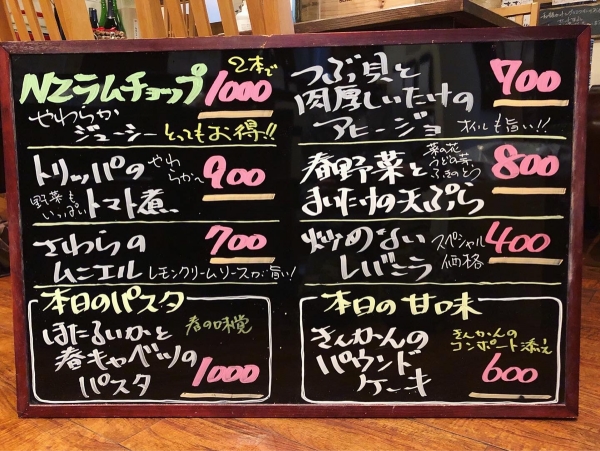 NZラムチョップ 2本で 1000
やわらか
ジューシー とってもお得!!
トリッパの やわらか〜 900
野菜も
いっぱい トマト煮
さわらの 700
ムニエル レモンクリームソースが旨い!
本日のパスタ
ほたるいかと 春の味覚
春キャベツの
パスタ 1000
つぶ貝と 700
肉厚しいたけの
アヒージョ オイルも旨い!!
春野菜と 菜の花 うどの芽 ふきのとう 800
まいたけの天ぷら
炒めない スペシャル 400
レバニラ 価格
本日の甘味
きんかんの きんかんの
パウンド コンポート添え
ケーキ 600